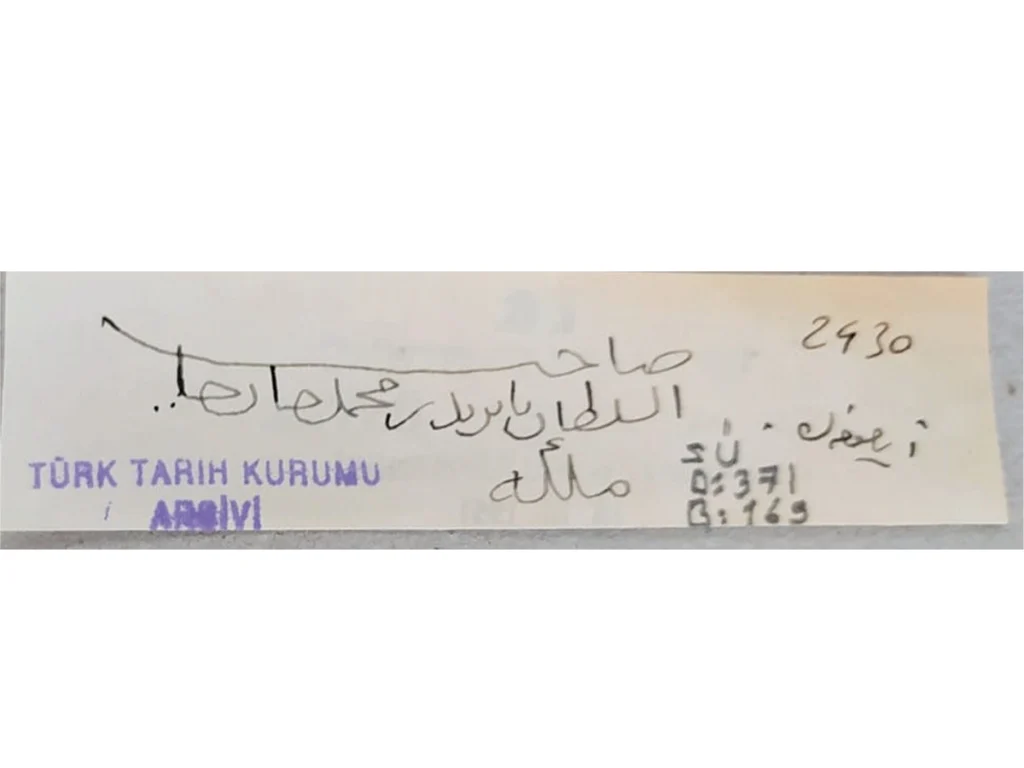 2430
صاحب
السلطان بايزيد بن محمد خان
ملكه
SÜ
D: 371
B: 169
TÜRK TARIH KURUMU
ARŞİVİ